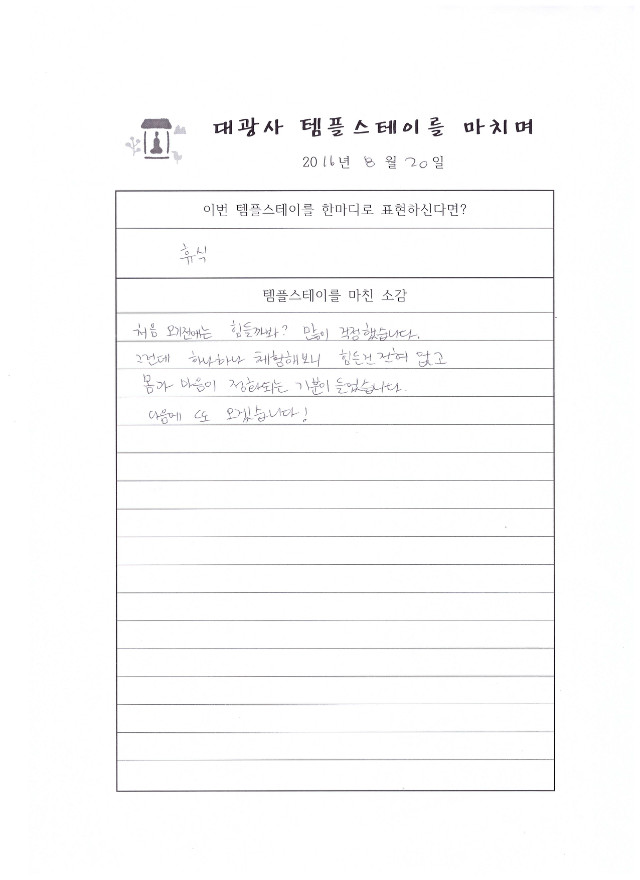 대광사 템플스테이를 마치며
2016년 8월 20일
이번 템플스테이를 한마디로 표현하신다면?
휴식
템플스테이를 마친 소감
처음 오기전에는 힘들까봐? 많이 걱정했습니다.
그런데 하나하나 체험해보니 힘든건 전혀 없고
몸과 마음이 정화되는 기분이 들었습니다.
다음에 또 오겠습니다!